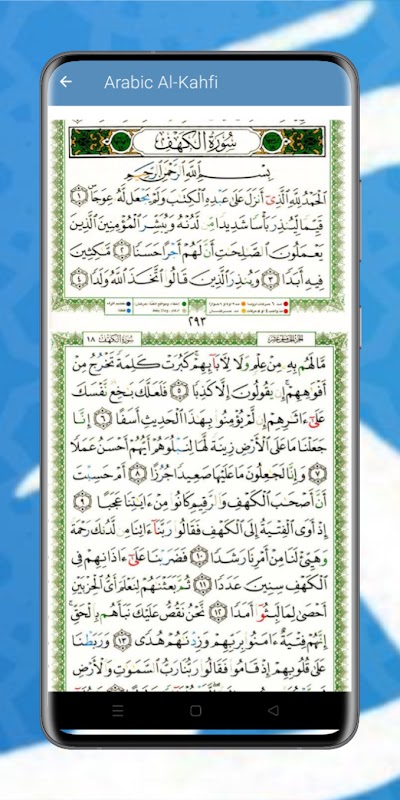 Arabic Al-Kahfi
سُورَةُ الكَهْفِ
بِسْمِ اللَّهِ الرَّحْمَٰنِ الرَّحِيمِ
الْحَمْدُ لِلَّهِ الَّذِي أَنزَلَ عَلَىٰ عَبْدِهِ الْكِتَٰبَ وَلَمْ يَجْعَل لَّهُ عِوَجًا ۜ ١
قَيِّمًا لِّيُنذِرَ بَأْسًا شَدِيدًا مِّن لَّدُنْهُ وَيُبَشِّرَ الْمُؤْمِنِينَ الَّذِينَ
يَعْمَلُونَ الصَّٰلِحَٰتِ أَنَّ لَهُمْ أَجْرًا حَسَنًا ٢ مَّٰكِثِينَ
فِيهِ أَبَدًا ٣ وَيُنذِرَ الَّذِينَ قَالُوا اتَّخَذَ اللَّهُ وَلَدًا ٤
٢٩٣
سُورَةُ الكَهْفِ ١٨
مَّا لَهُم بِهِ مِنْ عِلْمٍ وَلَا لِآبَائِهِمْ كَبُرَتْ كَلِمَةً تَخْرُجُ مِنْ
أَفْوَٰهِهِمْ إِن يَقُولُونَ إِلَّا كَذِبًا ٥ فَلَعَلَّكَ بَٰخِعٌ نَّفْسَكَ
عَلَىٰ ءَاثَٰرِهِمْ إِن لَّمْ يُؤْمِنُوا بِهَٰذَا الْحَدِيثِ أَسَفًا ٦ إِنَّا
جَعَلْنَا مَا عَلَى الْأَرْضِ زِينَةً لَّهَا لِنَبْلُوَهُمْ أَيُّهُمْ أَحْسَنُ عَمَلًا
٧ وَإِنَّا لَجَٰعِلُونَ مَا عَلَيْهَا صَعِيدًا جُرُزًا ٨ أَمْ حَسِبْتَ
أَنَّ أَصْحَٰبَ الْكَهْفِ وَالرَّقِيمِ كَانُوا مِنْ ءَايَٰتِنَا عَجَبًا ٩
إِذْ أَوَى الْفِتْيَةُ إِلَى الْكَهْفِ فَقَالُوا رَبَّنَا ءَاتِنَا مِن لَّدُنكَ رَحْمَةً
وَهَيِّئْ لَنَا مِنْ أَمْرِنَا رَشَدًا ١٠ فَضَرَبْنَا عَلَىٰ ءَاذَانِهِمْ فِي
الْكَهْفِ سِنِينَ عَدَدًا ١١ ثُمَّ بَعَثْنَٰهُمْ لِنَعْلَمَ أَيُّ الْحِزْبَيْنِ
أَحْصَىٰ لِمَا لَبِثُوا أَمَدًا ١٢ نَّحْنُ نَقُصُّ عَلَيْكَ نَبَأَهُم بِالْحَقِّ
إِنَّهُمْ فِتْيَةٌ ءَامَنُوا بِرَبِّهِمْ وَزِدْنَٰهُمْ هُدًى ١٣ وَرَبَطْنَا
عَلَىٰ قُلُوبِهِمْ إِذْ قَامُوا فَقَالُوا رَبُّنَا رَبُّ السَّمَٰوَٰتِ وَالْأَرْضِ